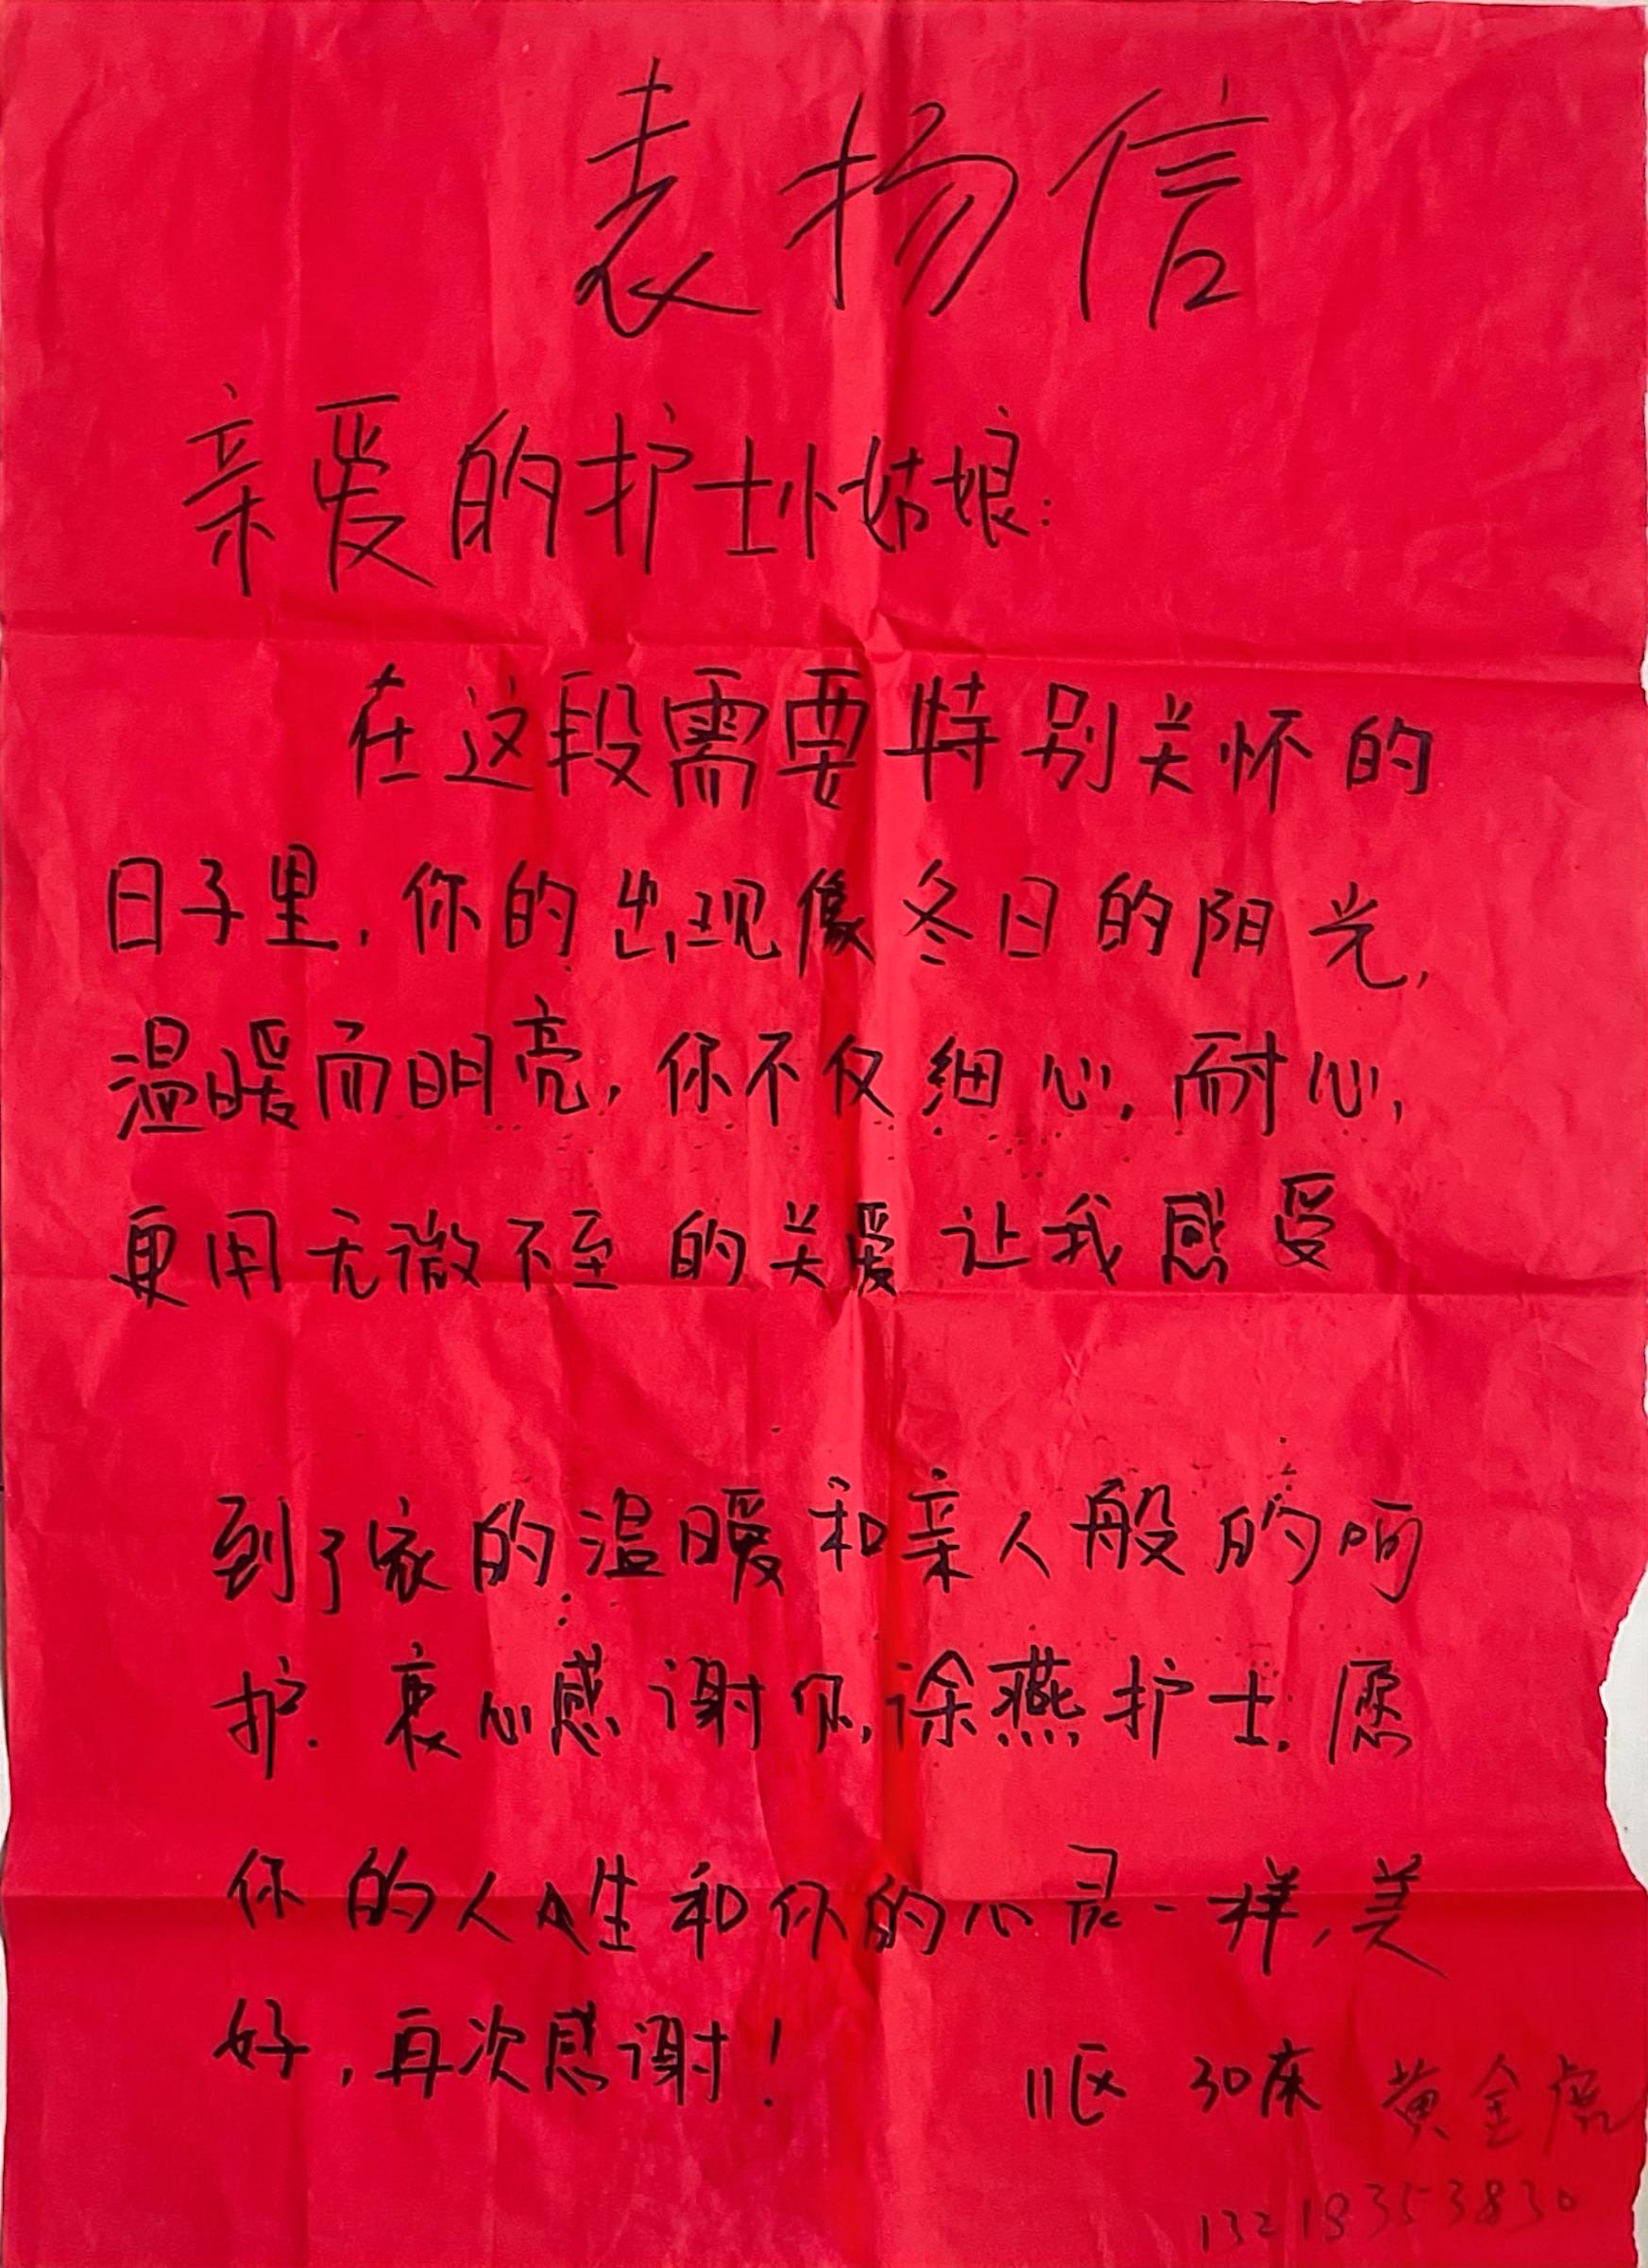 表扬信
亲爱的护士小姑娘:
在这段需要特别关怀的
日子里,你的出现像冬日的阳光,
温暖而明亮,你不仅细心,耐心,
更用无微不至的关爱让我感受
到了家的温暖和亲人般的呵
护.衷心感谢你,涂燕护士.愿
你的人生和你的心灵一样,美
好,再次感谢!
11区 30床 黄金虎
13218353830